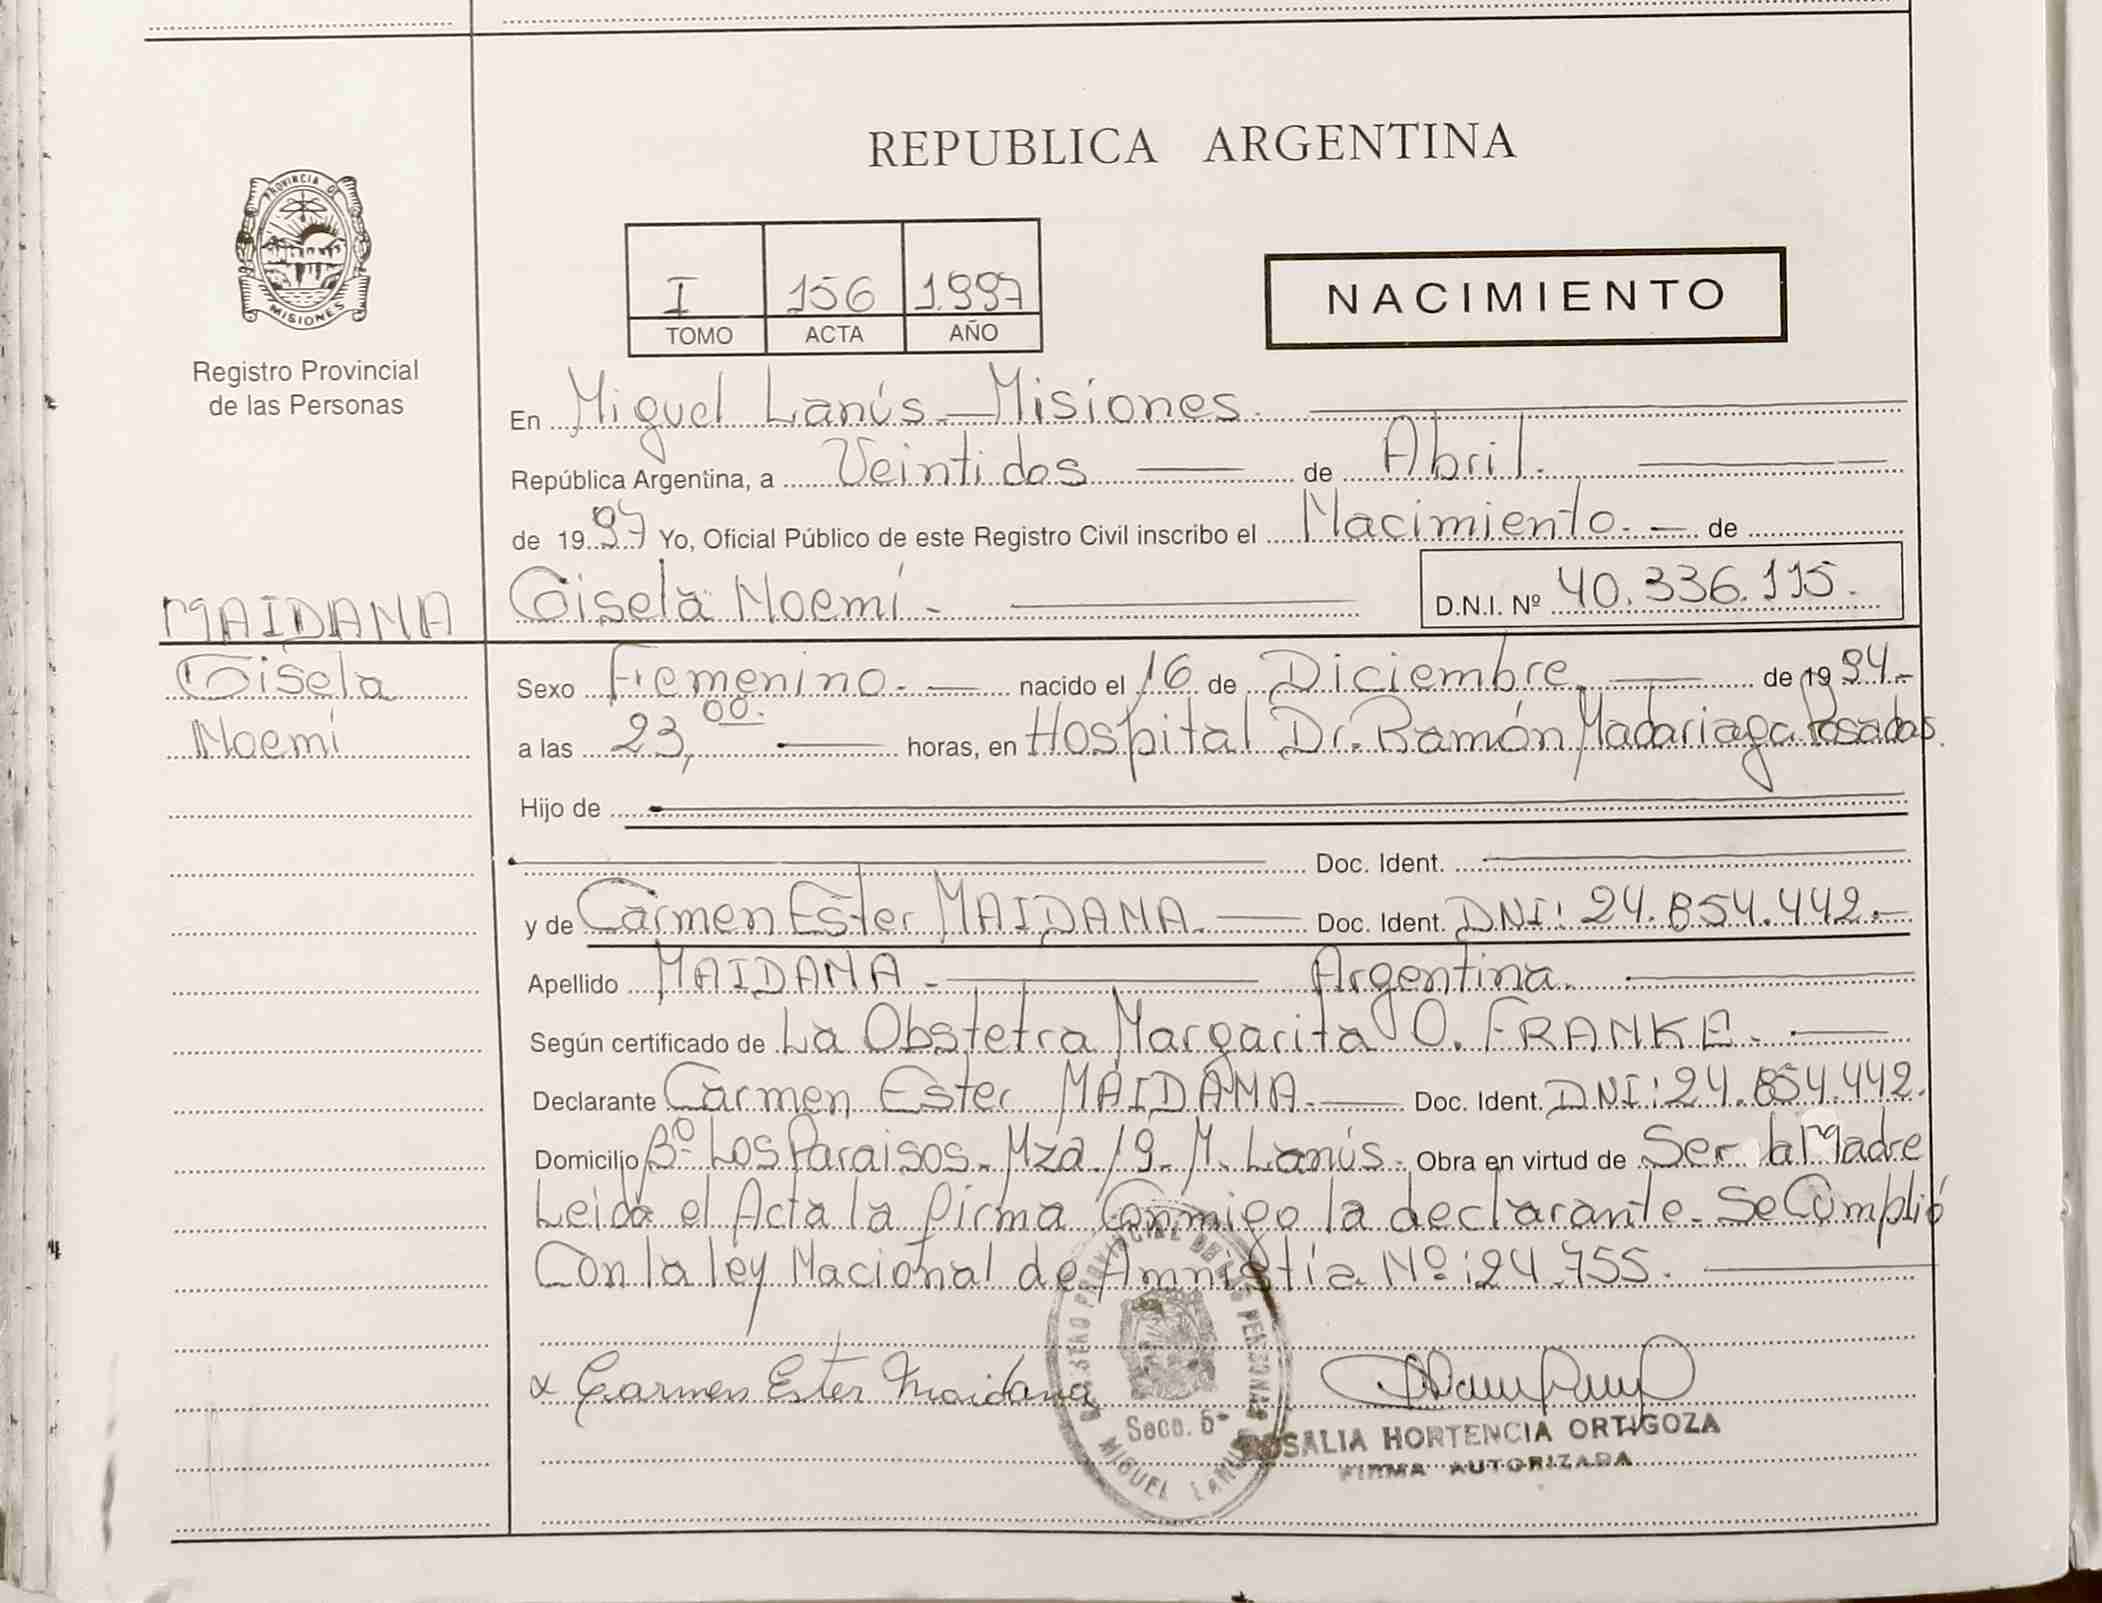 REPUBLICA ARGENTINA
PROVINCIA DE MISIONES
Registro Provincial
de las Personas
I 156 1.997
TOMO ACTA AÑO
NACIMIENTO
En Miguel Lanús - Misiones.
República Argentina, a Veintidos de Abril.
de 1997 Yo, Oficial Público de este Registro Civil inscribo el Nacimiento. de
MAIDANA
Gisela Noemí
Gisela Noemí - D.N.I. Nº 40.336.115.
Sexo Femenino. nacido el 16 de Diciembre. de 1994.-
a las 23,00. horas, en Hospital Dr. Ramón Madariaga. Posadas.
Hijo de
Doc. Ident.
y de Carmen Ester MAIDANA. Doc. Ident. DNI: 24.854.442.-
Apellido MAIDANA - Argentina.
Según certificado de La Obstetra Margarita O. FRANKE.
Declarante Carmen Ester MAIDANA. Doc. Ident. DNI: 24.854.442.
Domicilio Bº Los Paraisos. Mza. 19. M. Lanús. Obra en virtud de Ser la Madre
Leida el Acta la firma Conmigo la declarante. Se Cumplió
Con la ley Nacional de Amnistía Nº: 24.755.
x Carmen Ester Maidana
REGISTRO PROVINCIAL DE LAS PERSONAS
Secc. 6ª
MIGUEL LANUS
ROSALIA HORTENCIA ORTIGOZA
FIRMA AUTORIZADA